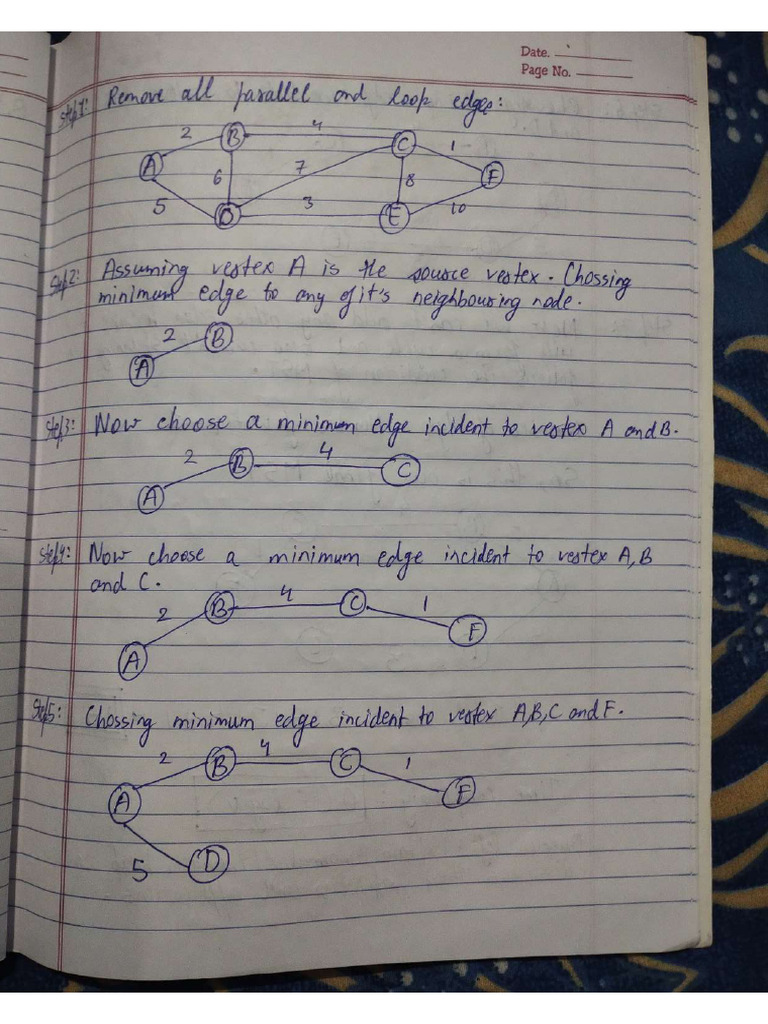 Date.
Page No.
Step1: Remove all parallel and loop edges:
2 B 4 C 1
A 6 7 8 F
5 D 3 E 10
Step2: Assuming vertex A is the source vertex. Chossing
minimum edge to any of it's neighbouring node.
2 B
A
Step3: Now choose a minimum edge incident to vertex A and B.
2 B 4 C
A
Step4: Now choose a minimum edge incident to vertex A, B
and C.
2 B 4 C 1
A F
Step5: Chossing minimum edge incident to vertex A, B, C and F.
2 B 4 C 1
A F
5 D